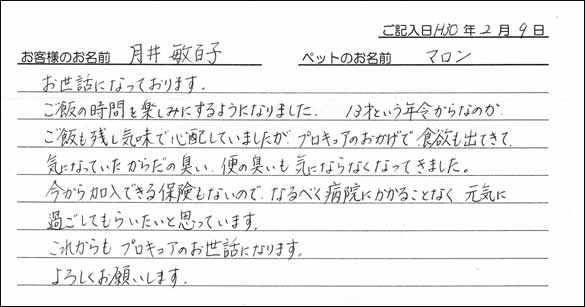 ご記入日 H30 年 2 月 9 日
お客様のお名前 月井 敏百子 ペットのお名前 マロン
お世話になっております。
ご飯の時間を楽しみにするようになりました。 13才という年令からなのか
ご飯も残し気味で心配していましたが、プロキュアのおかげで 食欲も出てきて、
気になっていた からだの臭い、便の臭いも 気にならなくなってきました。
今から加入できる保険もないので、なるべく病院にかかることなく 元気に
過ごしてもらいたいと思っています。
これからも プロキュアのお世話になります。
よろしくお願いします。